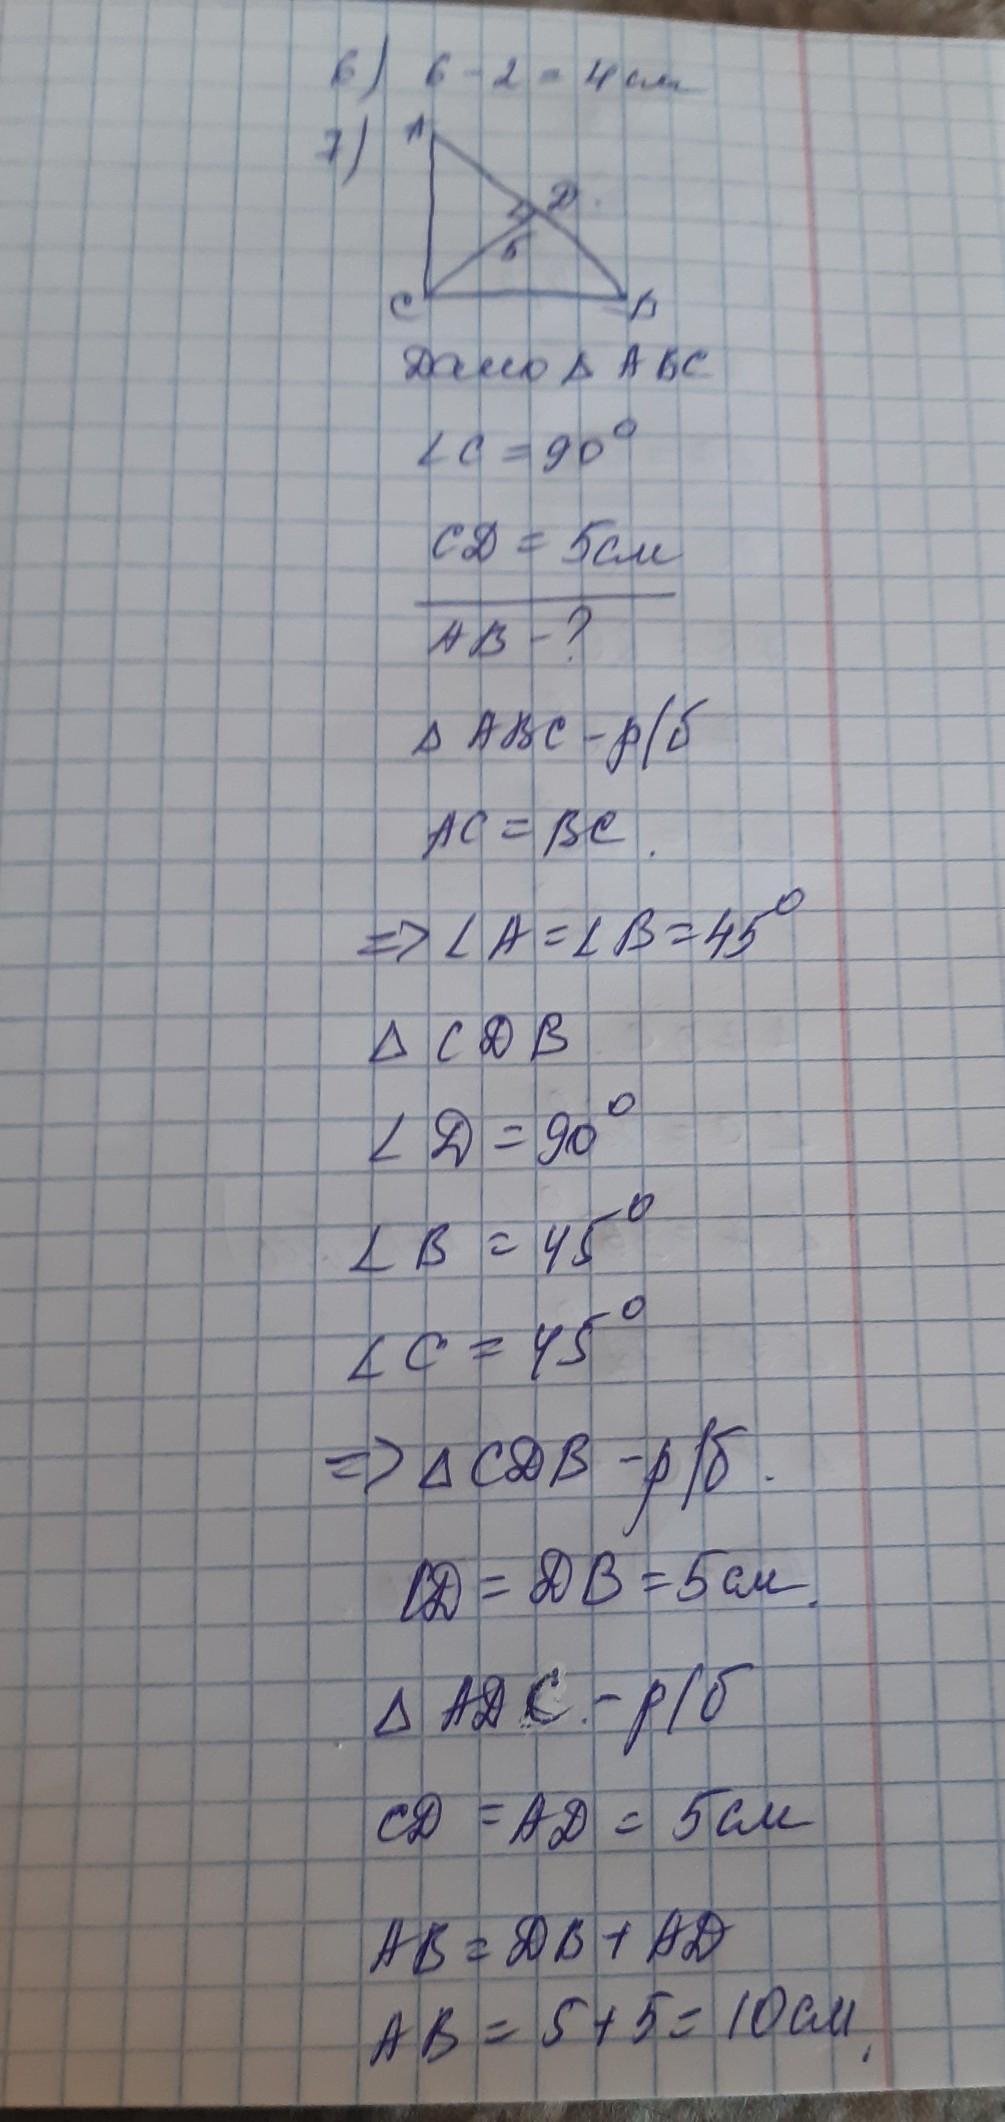 6) 6 - 2 = 4 см
7)
A
D
5
C B
Дано Δ ABC
∠C = 90°
CD = 5см
AB - ?
Δ ABC - р/б
AC = BC.
=> ∠A = ∠B = 45°
Δ CDB
∠D = 90°
∠B = 45°
∠C = 45°
=> Δ CDB - р/б.
CD = DB = 5см.
Δ ADC. - р/б
CD = AD = 5см
AB = DB + AD
AB = 5 + 5 = 10см.